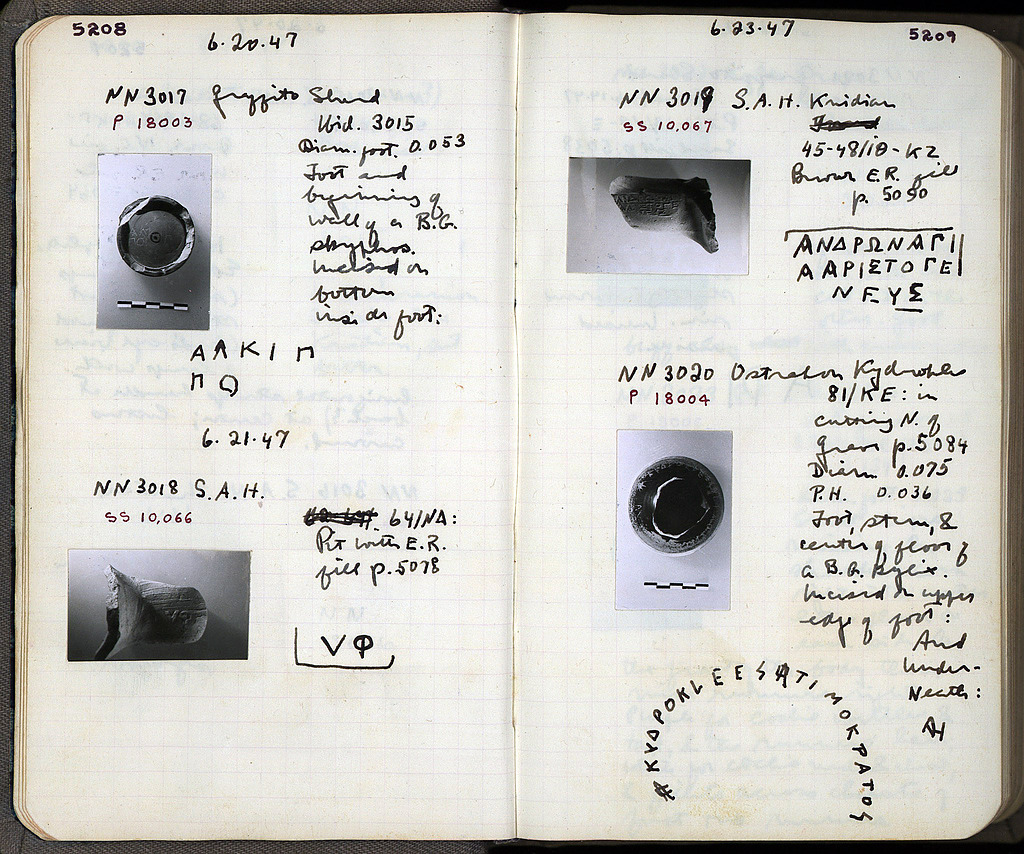 5208
6·20·47
NN 3017 Graffito Sherd
P 18003
Ibid. 3015
Diam. foot. 0.053
Foot and
beginning of
wall of a B.G.
skyphos.
Incised on
bottom
inside foot:
ΑΛΚΙΠ
Π
6·21·47
NN 3018 S.A.H.
SS 10,066
64/ΝΑ:
Pit with E.R.
fill p. 5078
VΦ
6·23·47
5209
NN 3019 S.A.H. Knidian
SS 10,067
45-48/ΙΘ-ΚΖ
Brown E.R. fill
p. 5050
ΑΝΔΡΩΝΑΓΙ
ΑΑΡΙΣΤΟΓΕ
ΝΕΥΣ
NN 3020 Ostrakon Kydrokles
P 18004
81/ΚΕ: in
cutting N. of
grave p. 5084
Diam 0.075
P.H. 0.036
Foot, stem, &
center of floor of
a B.G. kylix.
Incised on upper
edge of foot:
And
under-
neath:
ΚΥΔΡΟΚLΕΕS ΤΙΜΟΚΡΑΤΟS